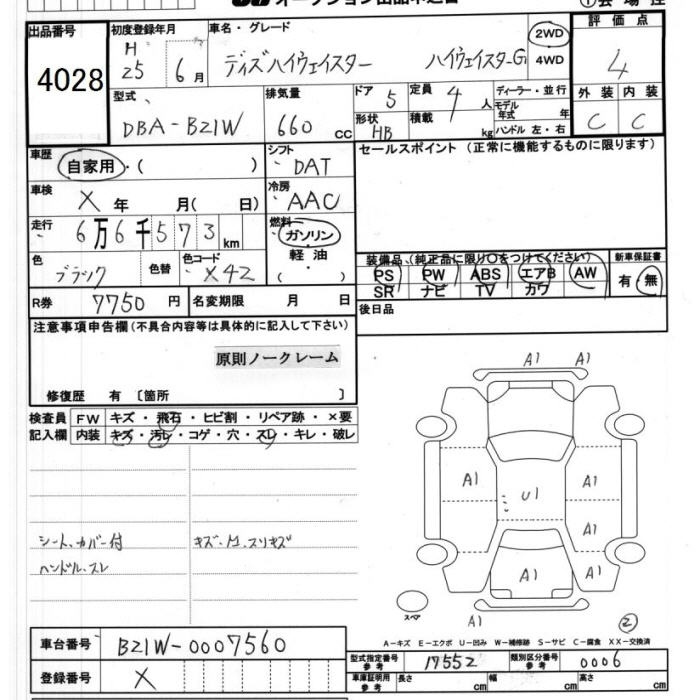 出品番号
4028
初度登録年月
H
25
6 月
車名・グレード
ディズハイウェイスター ハイウェイスターG
2WD
4WD
評価点
4
外装 内装
C C
型式
DBA-B21W
排気量
660 cc
ドア 5
形状 HB
定員 4 人
積載 kg
ディーラー・並行
モデル年式 年
ハンドル 左・右
車歴
自家用・( )
シフト
DAT
セールスポイント (正常に機能するものに限ります)
車検
X 年 月( 日)
冷房
AAC
走行
6万6千573 km
燃料
ガソリン
軽油
( ・ )
色
ブラック
色替
色コード
X42
装備品 (純正品に限り〇をつけてください)
PS PW ABS エアB AW
SR ナビ TV カワ
新車保証書
有・無
R券 7750 円
名変期限 月 日
後日品
注意事項申告欄(不具合内容等は具体的に記入して下さい)
原則ノークレーム
修復歴 有 〔箇所 〕
検査員
記入欄
FW キズ・飛石・ヒビ割・リペア跡・×要
内装 キズ・汚レ・コゲ・穴・スレ・キレ・破レ
シート、カバー付
ハンドル、スレ
A1 A1
A1
A1
U1
A1
A1
A1
A1
A1
スペア
2
A-キズ E-エクボ U-凹み W-補修跡 S-サビ C-腐食 XX-交換済
車台番号
B21W-0007560
登録番号
X
型式指定番号
参考
17552
類別区分番号
参考
0006
車庫証明用
参考
長さ cm
幅 cm
高さ cm